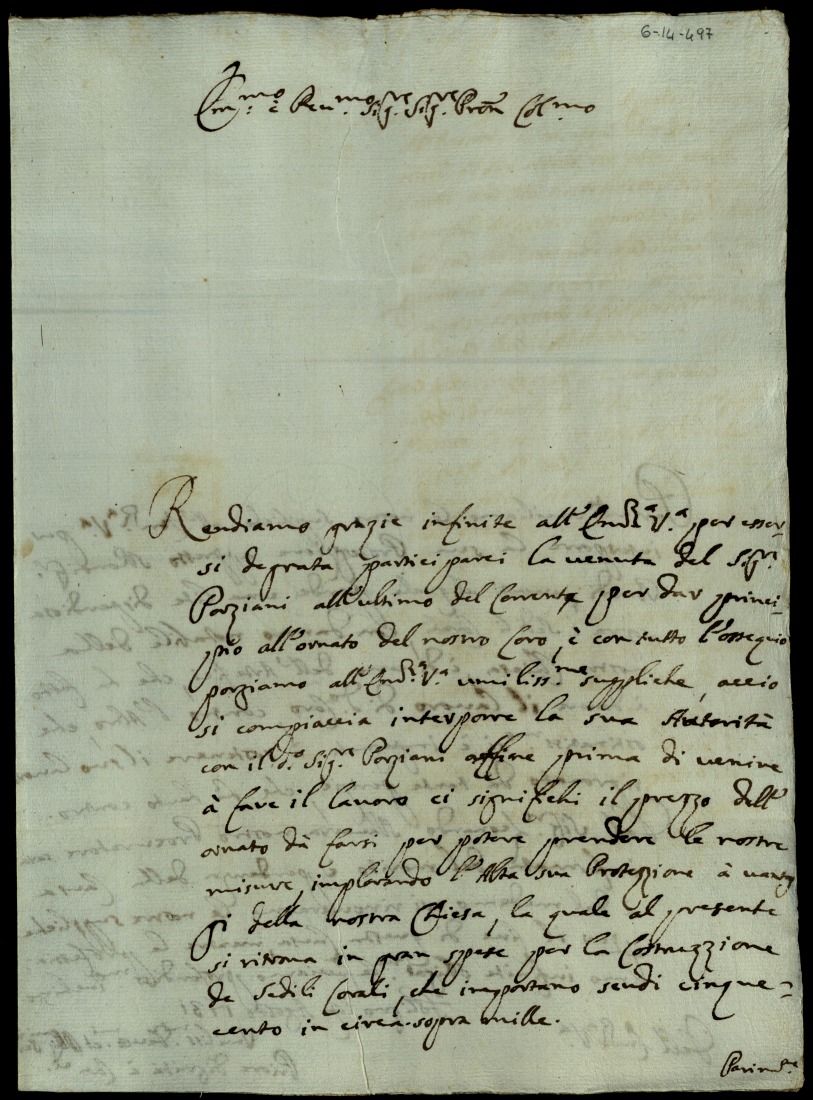 6-14-497
Em:mo è Reu:mo Sig:re Sig:re Pron Col:mo
Rendiamo grazie infinite all' Em̃za V.a per esser-
si degnata participarci la venuta del Sig:r
Porziani all'ultimo del Corrente per dar princi-
pio all'ornato del nostro Coro, è con tutto l'ossequio
porgiamo all' Em̃za V.a umiliss:me suppliche, accio
si compiaccia interporre la sua Autorità
con il d.o Sig:re Porziani affine prima di venire
à fare il lavoro ci significhi il prezzo dell'
ornato dà farsi per potere prendere le nostre
misure, implorando l'Alta sua Protezzione à vantag
gi della nostra Chiesa, la quale al presente
si ritrova in gran spese per la Costruzzione
de Sedili Corali, che importano scudi cinque-
cento in circa sopra mille.
Parim:te